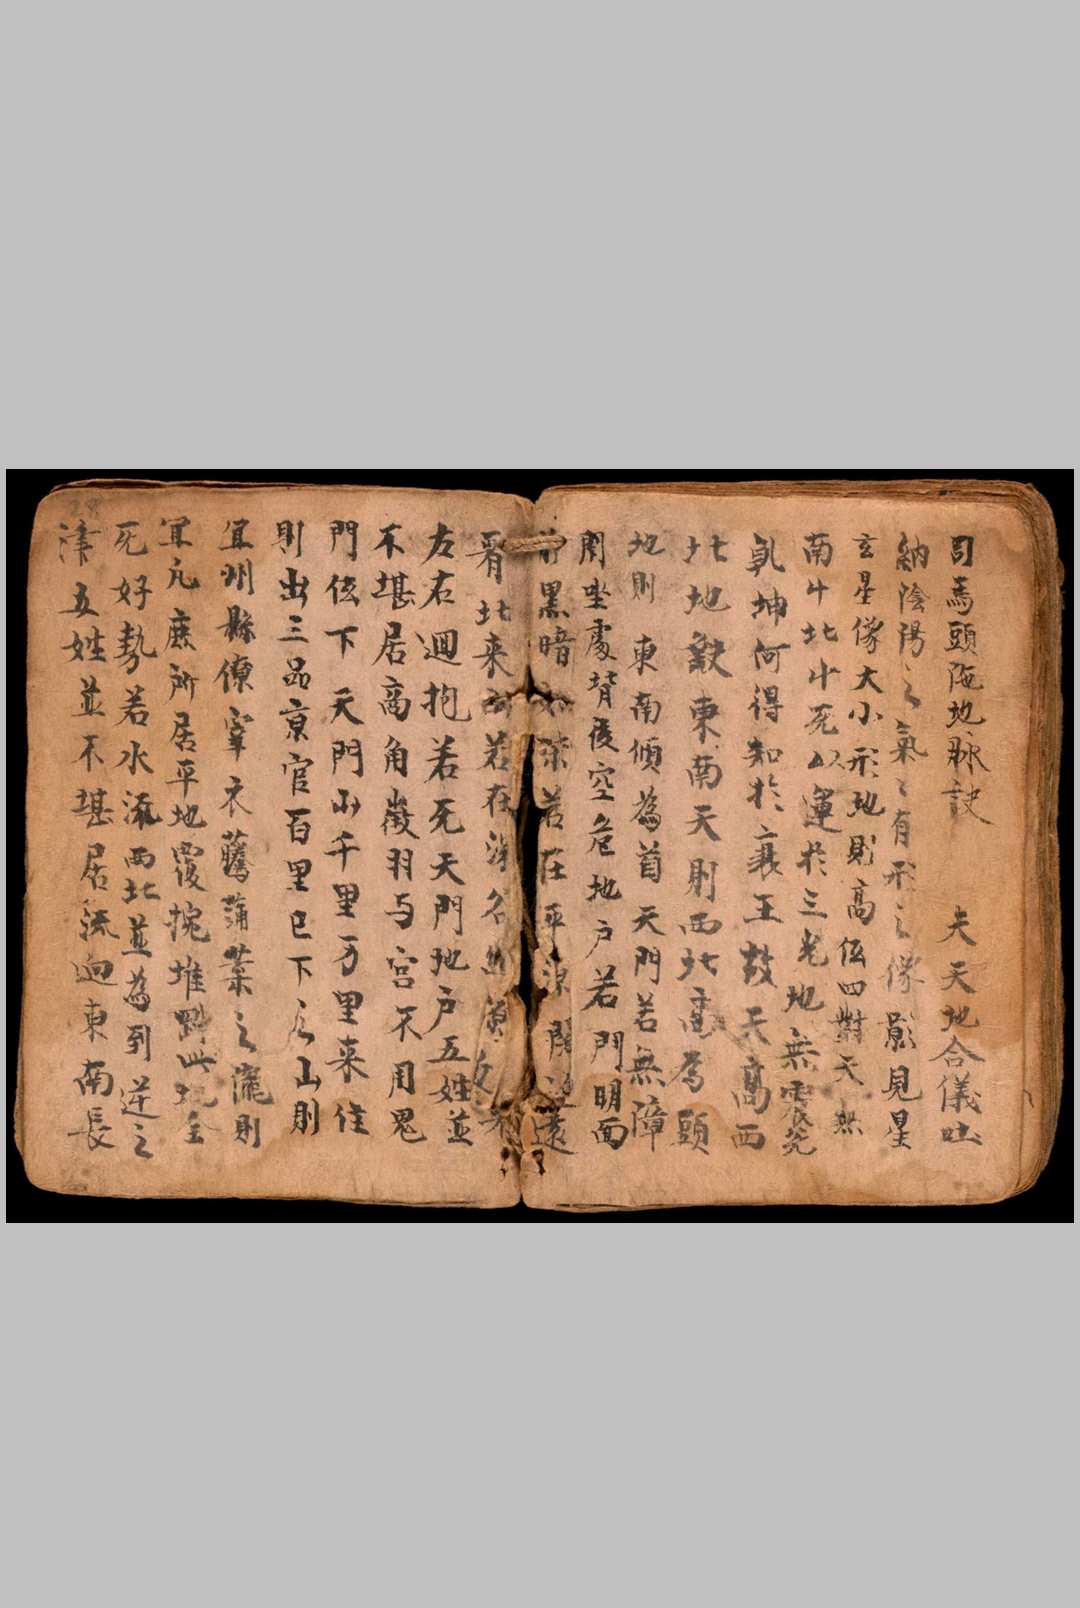 司馬頭陁地脉訣 夫天地合儀吐
納陰陽之氣〻有形之像影見星
玄星像大小形地則高伍四對天
南斗北斗死以運於三光地無
乹坤何得知於襄王故天高西
北地缺東南天則西北高為頭
地則 東南傾為首 天門若無障
閞坐處背後空危地户若門明面
前黒暗 若在平 遠
看北来 若在 名
左右迴抱若死天門地户五姓並
不堪居商角徵羽与宫不用鬼
門伍下 天門山千里万里来住
則出三品京官百里已下之山則
宜州縣僚宰衣騰蒲葉之隴則
宜凡庶所居平地覆
死好勢若水流西北並為到逆之
津五姓並不堪居流迴東南長